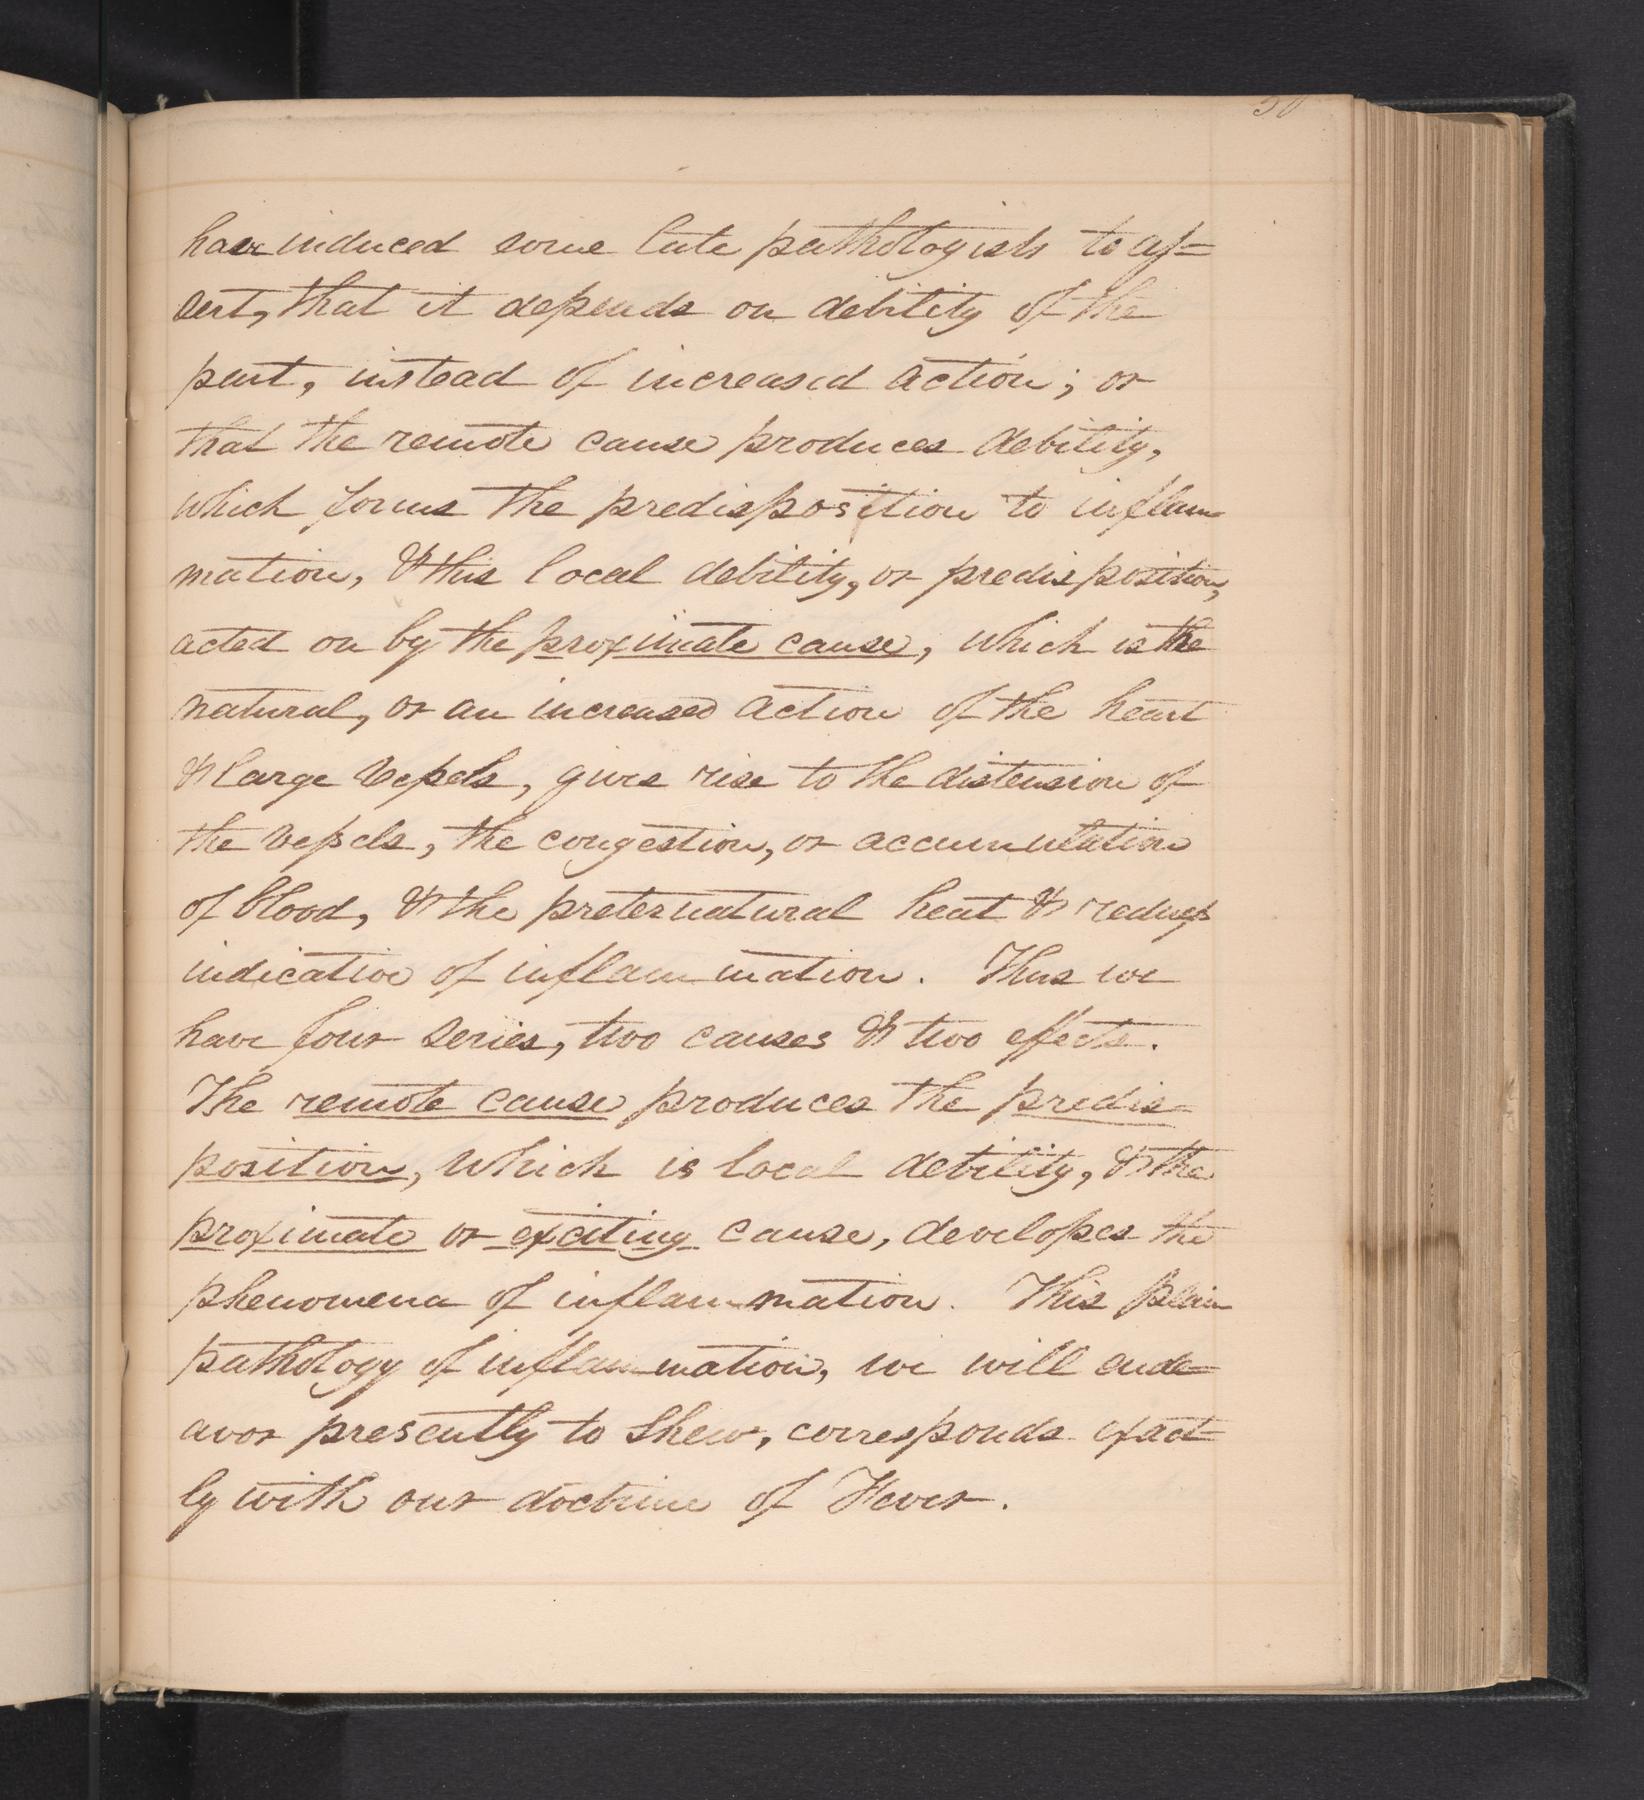 have induced some late pathologists to as=
sert, that it depends on debility of the
part, instead of increased action; or
that the remote cause produces debility,
which forms the predisposition to inflam
mation, & this local debility, or predisposition,
acted on by the proximate cause, which is the
natural, or an increased action of the heart
& large vessels, gives rise to the distension of
the vessels, the congestion, or accumulation
of blood, & the preternatural heat & redness
indicative of inflammation. Thus we
have four series, two causes & two effects.
The remote cause produces the predis=
position, which is local debility, & the
proximate or exciting cause, developes the
phenomena of inflammation. This plain
pathology of inflammation, we will ende=
avor presently to shew, corresponds exact=
ly with our doctrine of Fever.